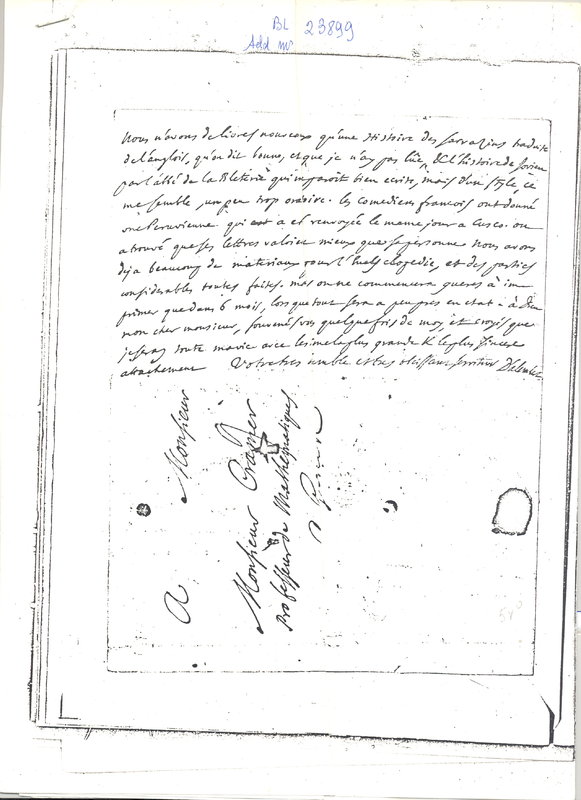 BL 23899
Add ms
Nous n'avons de livres nouveaux qu'une Histoire des sarrazins traduite
de l'anglois, qu'on dit bonne, et que je n'ay pas lüe, & l'histoire de Jovien
par l'abbé de la Bleterie qui m'paroit bien ecrite, mais d'un style, ce
me semble, un peu trop oratoire. les comediens francois ont donné
une Peruvienne qui a eté renvoyée le meme jour a Cusco. on
a trouvé que ses lettres valoient mieux que sa personne Nous avons
deja beaucoup de materiaux pour l'Encyclopedie, et des parties
considerables toutes faites. mais on ne commencera gueres à im
primer que dans 6 mois, lorsque tout sera a peu pres en etat. à Dieu
mon cher monsieur, souvenés vous quelquefois de moy, et croyés que
je seray toute ma vie avec l'estime la plus grande & le plus sincere
attachement Votre tres umble et tres obeissant serviteur D'alembert
A Monsieur
Monsieur Cramer
Professeur de Mathematiques
a Geneve